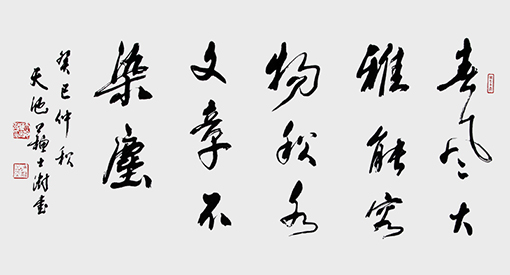 春风大
雅能容
物秋水
文章不
染尘
癸巳仲秋
天池
士澍书